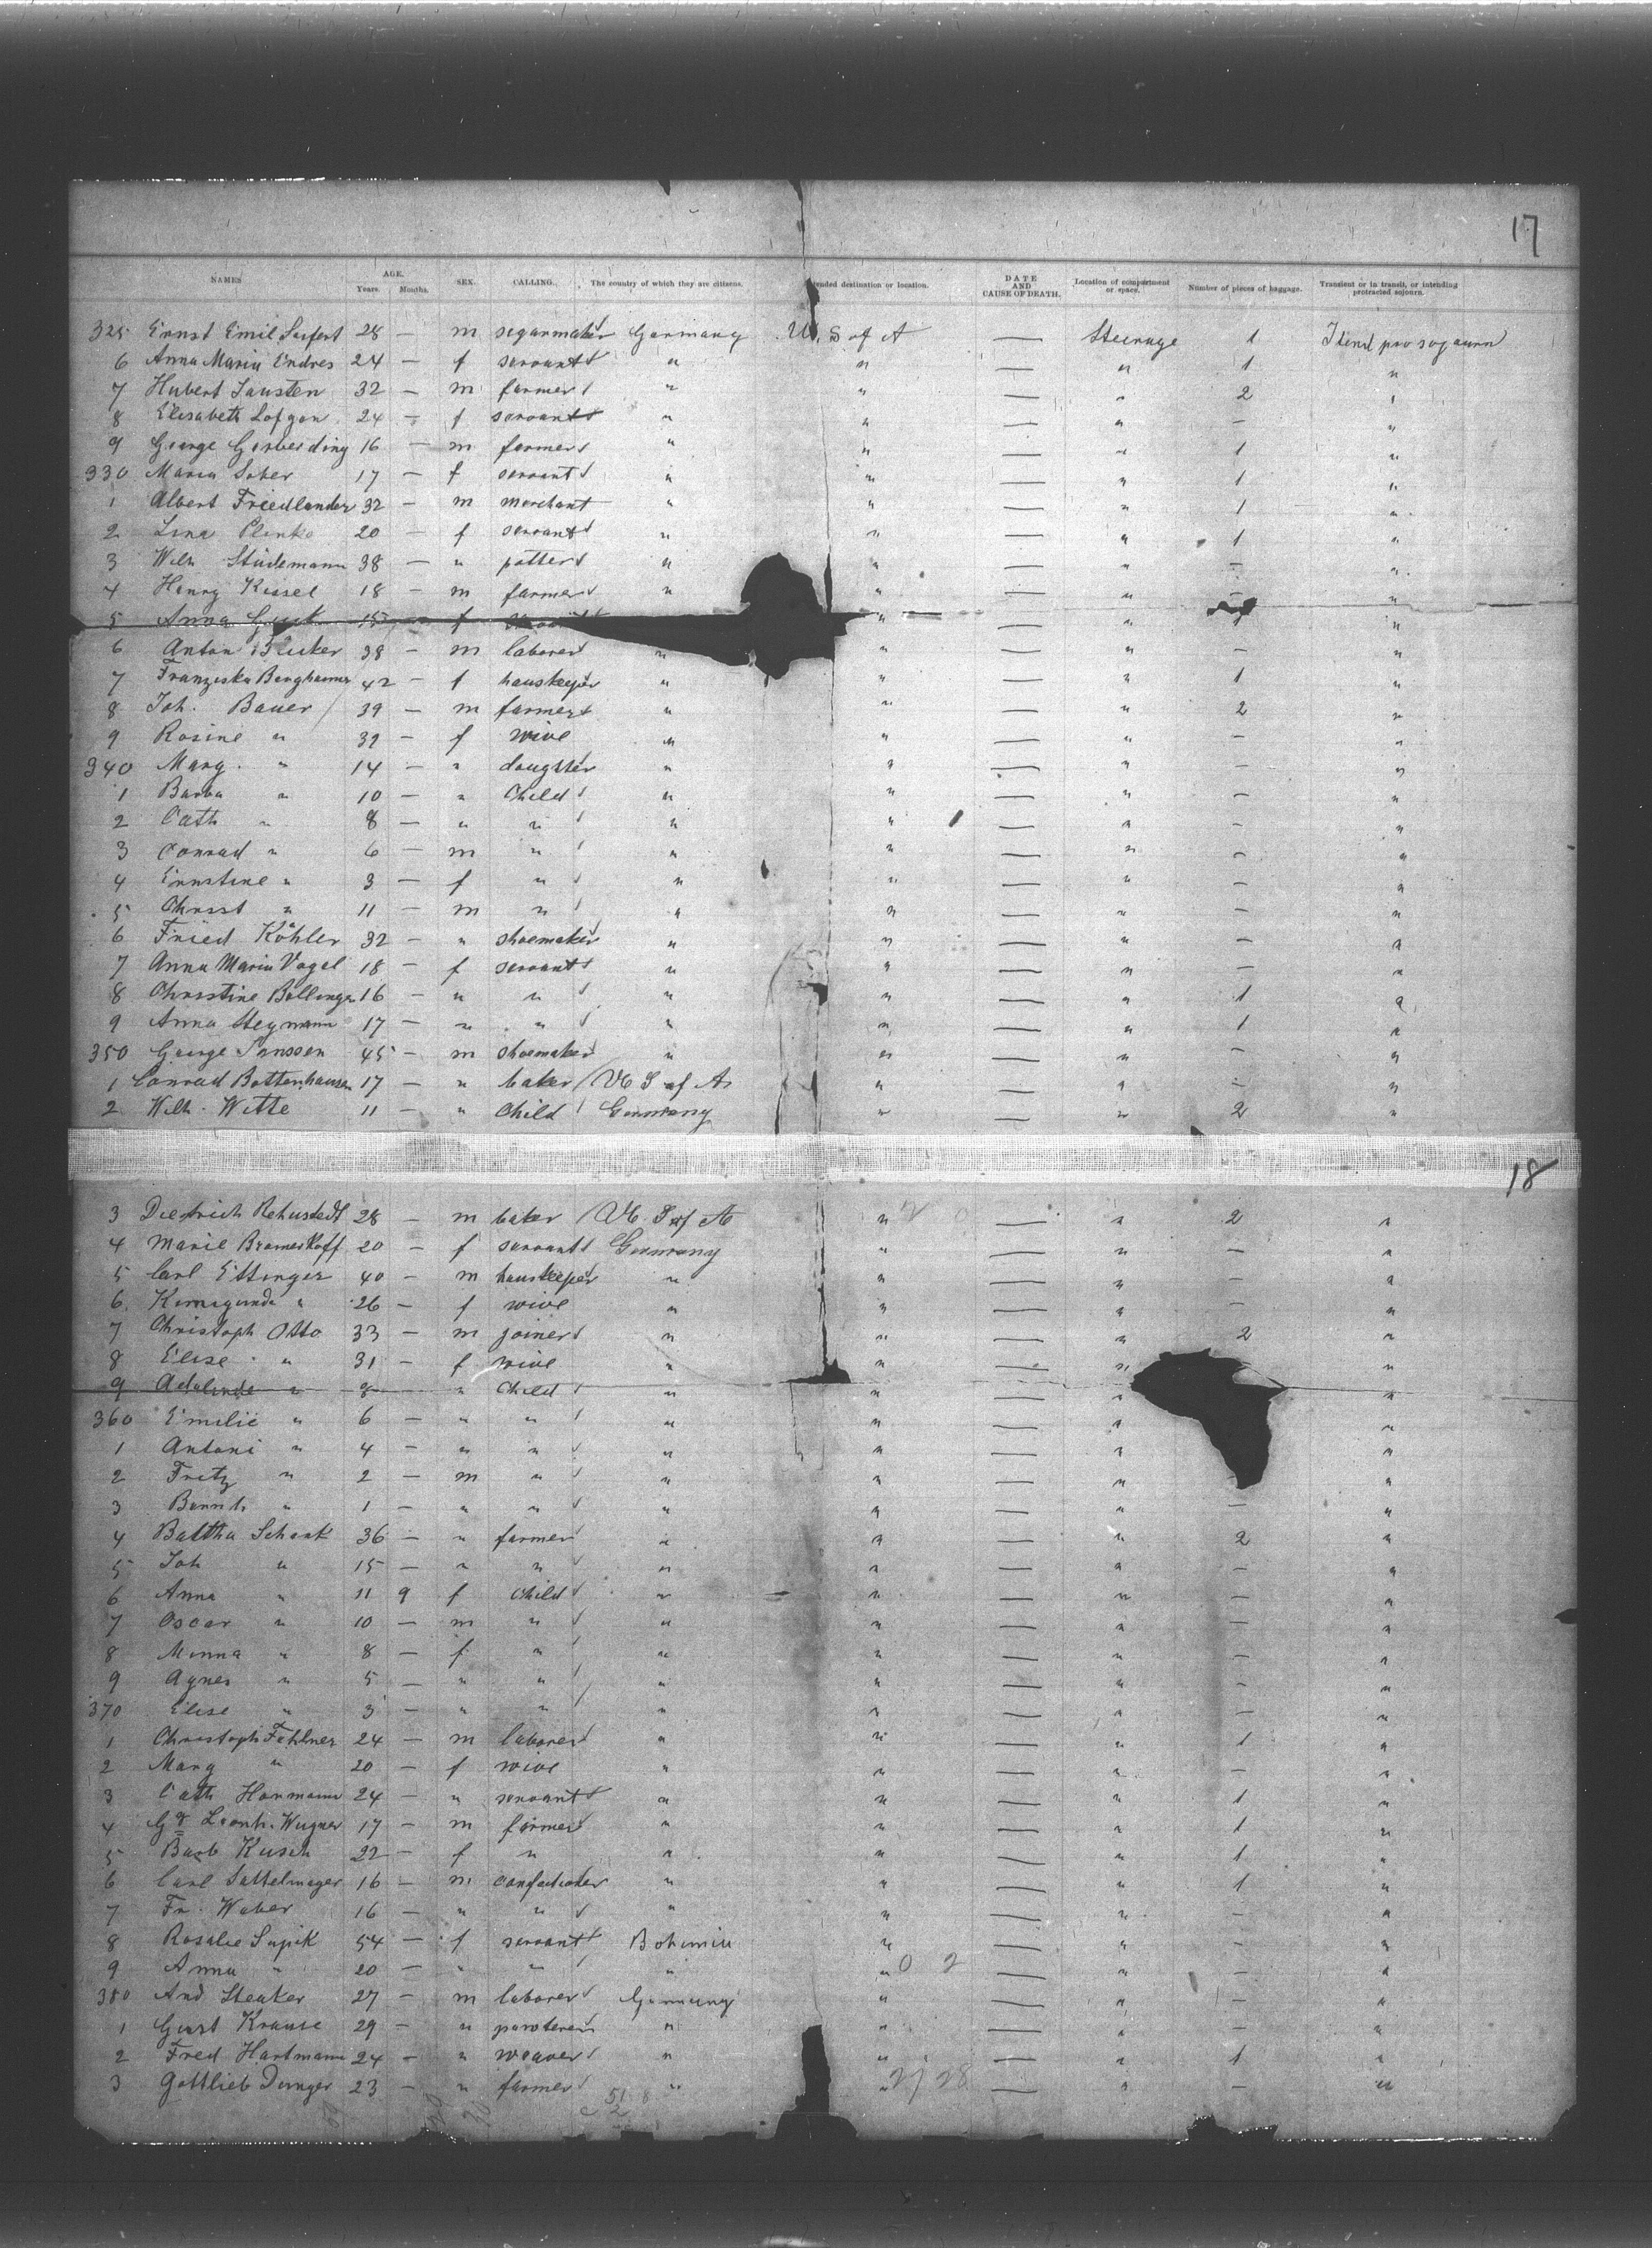 17
NAMES AGE. SEX. CALLING. The country of which they are citizens. Intended destination or location. DATE AND CAUSE OF DEATH. Location of compartment or space. Number of pieces of baggage. Transient or in transit, or intending protracted sojourn.
Years. Months.
325 Ernst Emil Seifert 28 — m segarmaker Germany U.S of A — Steerage 1
6 Anna Maria Endres 24 — f servant " " — " 1 "
7 Hubert Jausten 32 — m farmer " " — " 2 "
8 Elisabeth Lofgon 24 — f servant " " — " — "
9 George Gerberding 16 — m farmer " " — " 1 "
330 Maria Sober 17 — f servant " " — " 1 "
1 Albert Friedlander 32 — m merchant " " — " 1 "
2 Lina Plinke 20 — f servant " " — " 1 "
3 Wilh Stüdemann 38 — " potter " " — " — "
4 Henry Kissel 18 — m farmer " " — " — "
5 Anna 15 — f " — " "
6 Anton Becker 38 — m laborer " " — " — "
7 Franziska Berghammer 42 — f hauskeeper " " — " 1 "
8 Joh. Bauer 39 — m farmer " " — " 2 "
9 Rosine " 39 — f wive " " — " — "
340 Marg. " 14 — " daughter " " — " — "
1 Barba " 10 — " Child " " — " — "
2 Cath " 8 — " " " " — " — "
3 Conrad " 6 — m " " " — " — "
4 Ernstine " 3 — f " " " — " — "
5 Christ " 11 — m " " " — " — "
6 Fried Köhler 32 — " shoemaker " " — " — "
7 Anna Maria Vogel 18 — f servant " " — " — "
8 Christine Bollinger 16 — " " " " — " 1 "
9 Anna Stegmann 17 — " " " " — " 1 "
350 George Janssen 45 — m shoemaker " " — " — "
1 Conrad Bottenhausen 17 — " baker U S of A " — " — "
2 Wilh. Witte 11 — " Child Germany " — " 2 "
18
3 Dietrich Rehustedt 28 — m baker U. S of A " — " 2 "
4 Marie Bramerkoff 20 — f servant Germany " — " — "
5 Carl Ettinger 40 — m hauskeeper " " — " "
6 Kunigunda " 26 — f wive " " — " — "
7 Christoph Otto 33 — m joiner " " — " 2 "
8 Elise " 31 — f wive " " — " "
9 Adelinde " 8 — " Child " " — " "
360 Emilie " 6 — " " " " — " "
1 Antoni " 4 — " " " " — " "
2 Fritz " 2 — m " " " — " "
3 " 1 — " " " " — " — "
4 Baltha Schenk 36 — " farmer " " — " 2 "
5 Joh " 15 — " " " " — " — "
6 Anna " 11 9 f Child " " — " — "
7 Oscar " 10 — m " " " — " — "
8 Minna " 8 — f " " " — " — "
9 Agnes " 5 — " " " " — " — "
370 Elise " 3 — " " " " — " — "
1 Christoph Fehlner 24 — m laborer " " — " 1 "
2 Marg " 20 — f wive " " — " — "
3 Cath Hermann 24 — " servant " " — " 1 "
4 Gg Leonh. Wagner 17 — m farmer " " — " 1 "
5 Barb Kusch 22 — f " " " — " 1 "
6 Carl Sattelmayer 16 — m confectioner " " — " 1 "
7 Fr. Weber 16 — " " " " — " — "
8 Rosalie Supik 54 — f servant Bohemia " — " — "
9 Anna " 20 — " " " " 0 2 — " — "
380 And Steuker 27 — m laborer Germany " — " — "
1 Gust Krause 29 — " " " — " — "
2 Fred Hartmann 24 — " weaver " " — " 1 "
3 Gottlieb Dunger 23 — " farmer " " — " — "